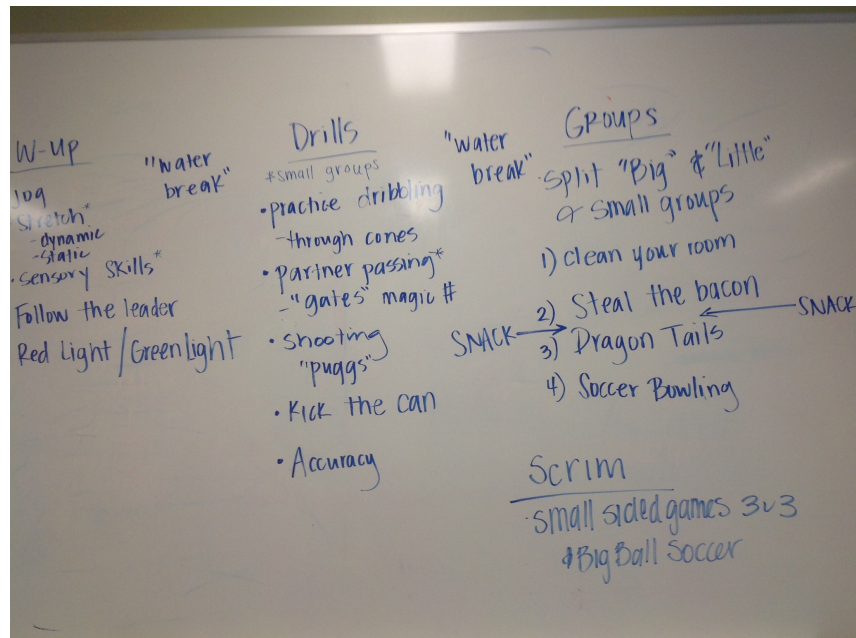 W-up
Jog
Stretch*
-dynamic
-static
·Sensory Skills*
Follow the leader
Red Light/Greenlight
"water
break"
Drills
*small groups
·practice dribbling
-through cones
·partner passing*
-"gates" magic #
·shooting
"puggs"
·Kick the can
·Accuracy
"water
break"
Groups
·split "Big" & "Little"
& small groups
1) clean your room
2) Steal the bacon
SNACK
SNACK
3) Dragon Tails
4) Soccer Bowling
Scrim
·small sided games 3v3
& Big Ball Soccer